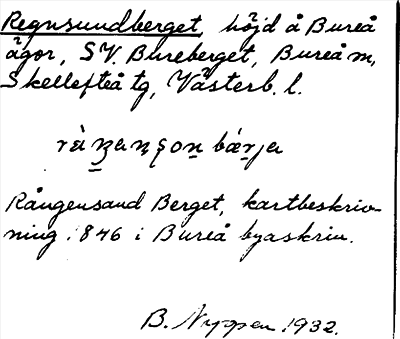 Regnsundberget, höjd å Bureå
ägor, SV. Bureberget, Bureå m,
Skellefteå tg, Västerb. l.
Rångensand Berget, kartbeskriv-
ning 1846 i Bureå byaskrin.
B. Nyppen 1932.